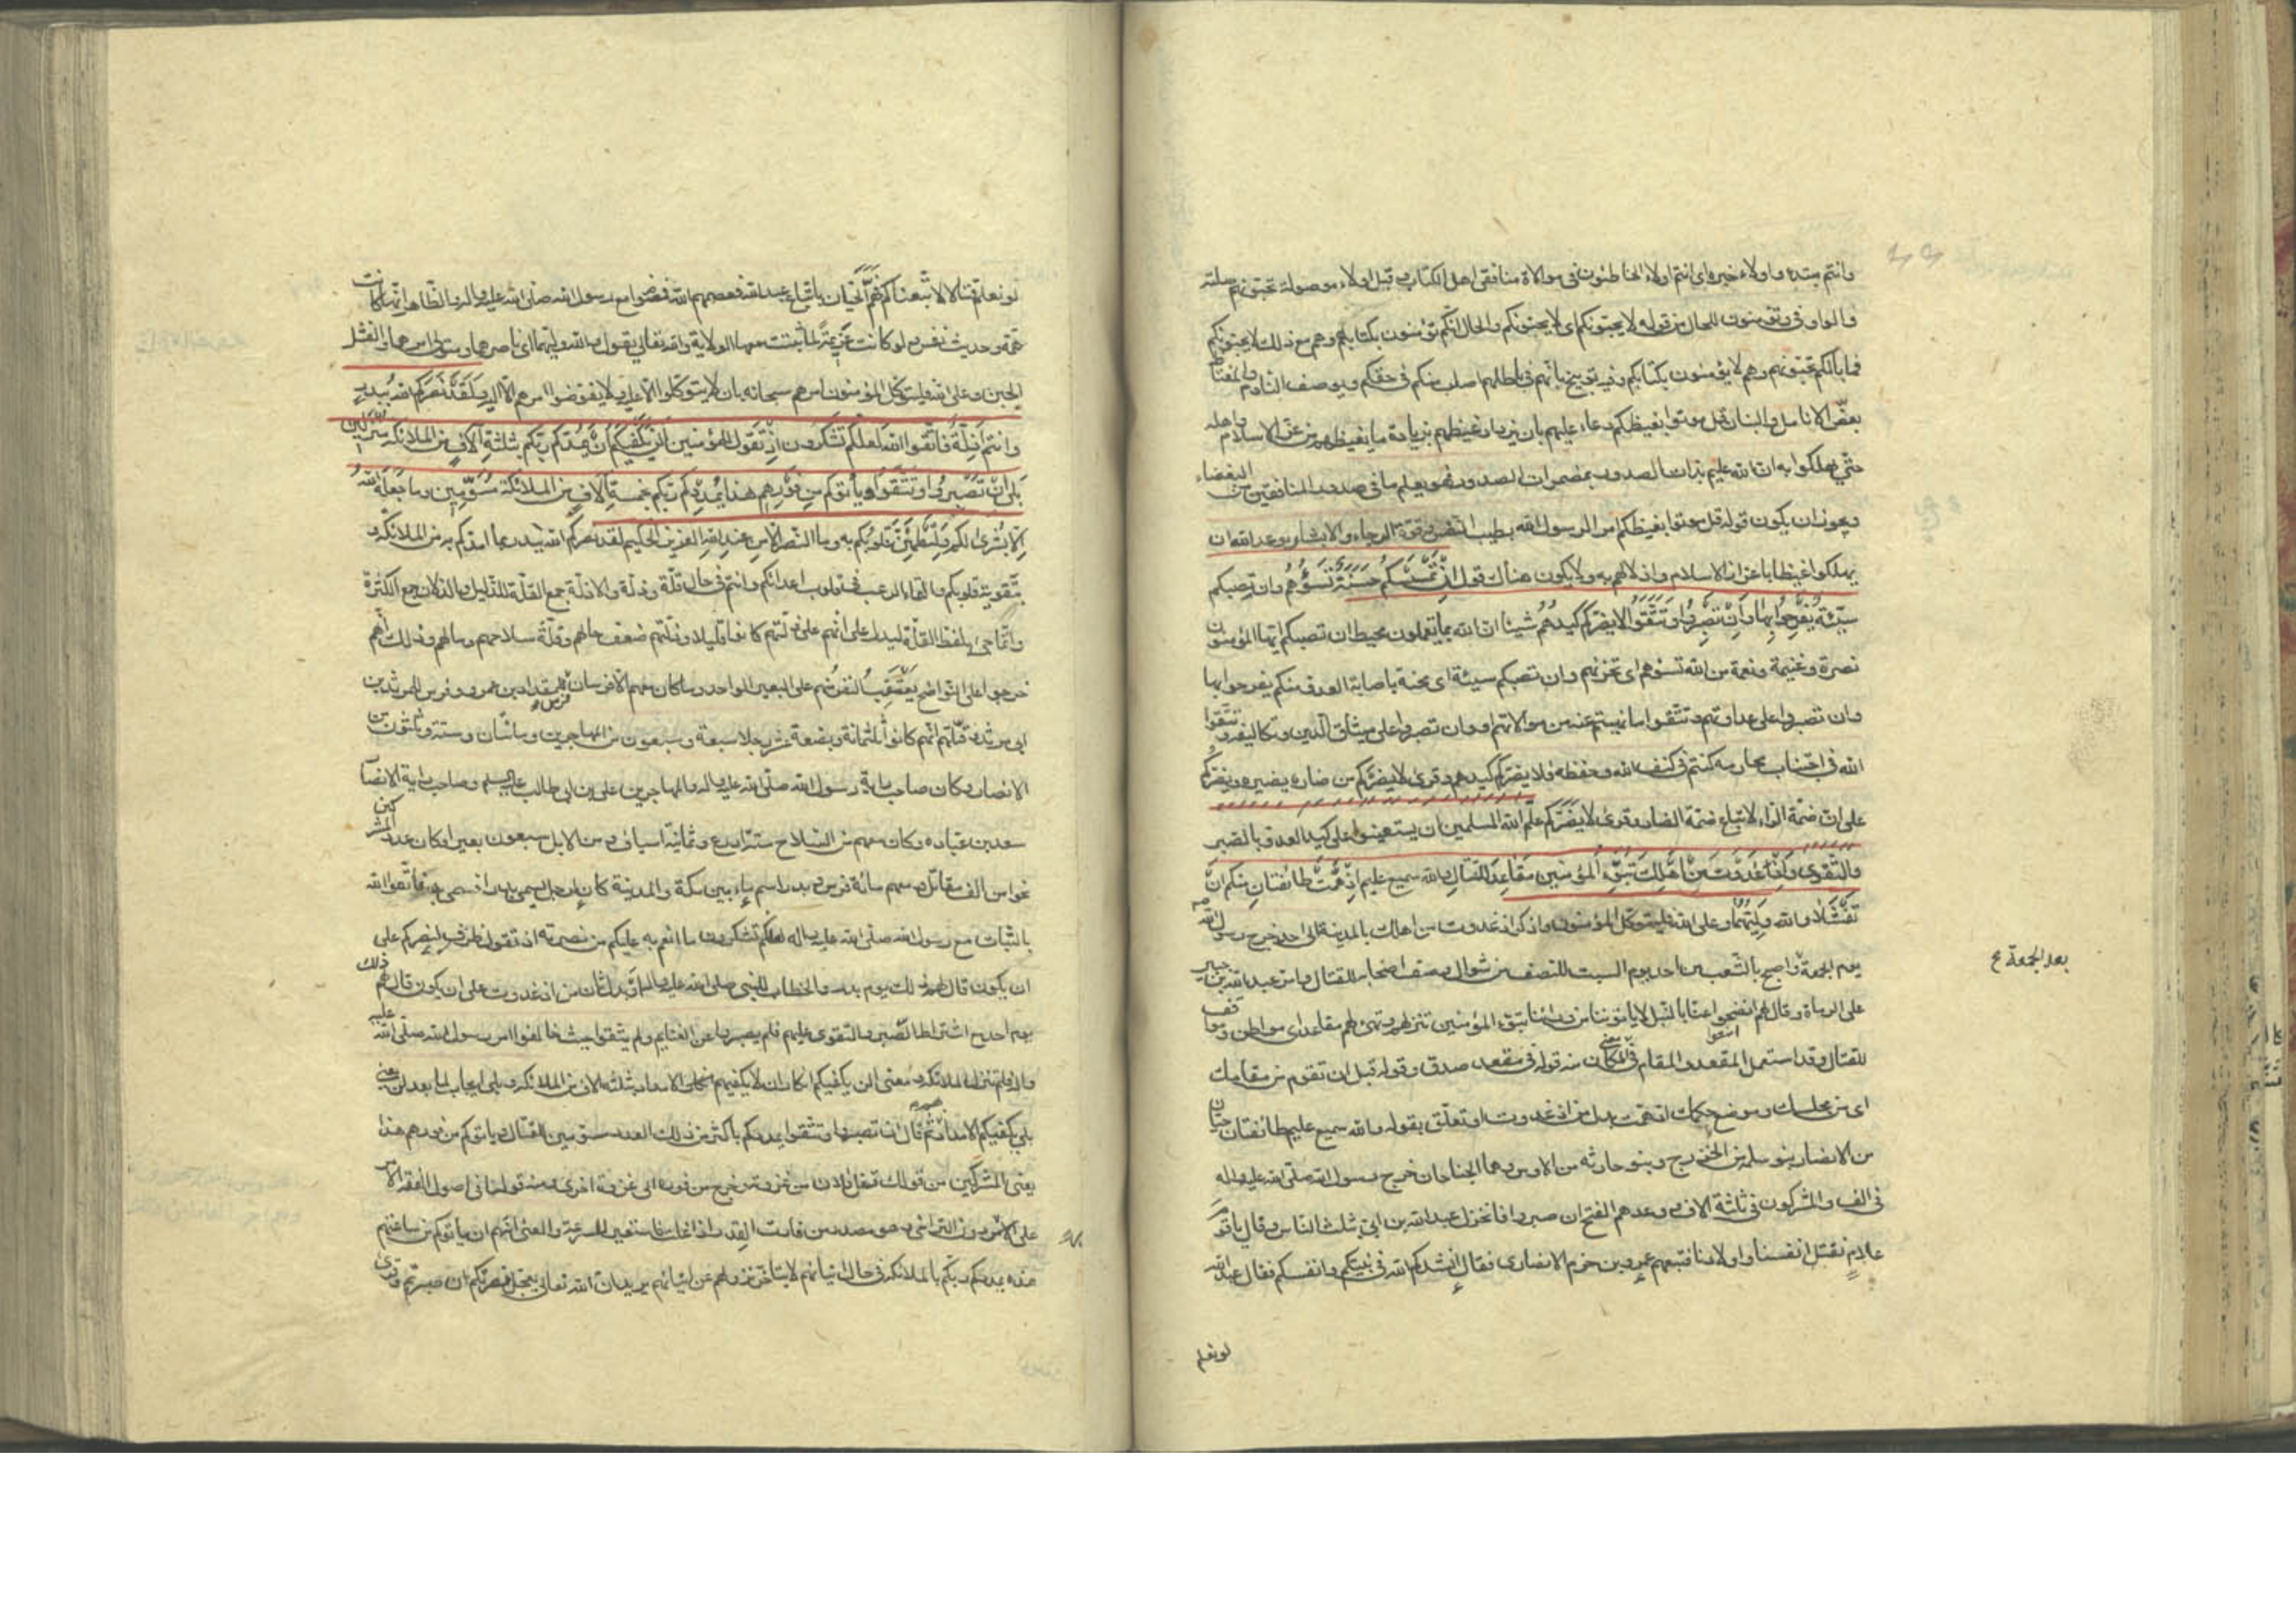 وانتم مبتدء واولاء خبره اي انتم اولاء الخاطئون في موالاة منافقي اهل الكتاب وقيل اولاء موصولة تحبونهم صلته
والواو في وتؤمنون للحال من قوله لا يحبونكم اي لا يحبونكم والحال انكم تؤمنون بكتابهم وهم مع ذلك لا يحبونكم
فما بالكم تحبونهم وهم لا يؤمنون بكتابكم وفيه توبيخ بانهم في باطلهم اصلب منكم في حقكم ويوصف النادم والمغتاظ
بعض الانامل والبنان قل موتوا بغيظكم دعاء عليهم بان يزداد غيظهم بزيادة ما يغيظهم من عز الاسلام واهله
حتى يهلكوا به ان الله عليم بذات الصدور بمضمرات الصدور فهو يعلم ما في صدور المنافقين من البغضاء
ويجوز ان يكون قوله قل موتوا بغيظكم امرا لرسول الله بطيب النفس وقوة الرجاء والابشار بوعد الله ان
يهلكوا غيظا باعزاز الاسلام واذلالهم به ولا يكون هناك قول ان تمسسكم حسنة تسؤهم وان تصبكم
سيئة يفرحوا بها وان تصبروا وتتقوا لا يضركم كيدهم شيئا ان الله بما يعملون محيط ان تصبكم ايها المؤمنون
نصرة وغنيمة ونعمة من الله تسؤهم اي تحزنهم وان تصبكم سيئة اي محنة باصابة العدو منكم يفرحوا بها
وان تصبروا على عداوتهم وتتقوا ما نهيتم عنه من موالاتهم او وان تصبروا على ميثاق الدين وتكاليفه وتتقوا
الله في اجتناب محارمه كنتم في كنف الله وحفظه فلا يضركم كيدهم وقرئ لا يضركم من ضاره يضيره ويضركم
على ان ضمة الراء لاتباع ضمة الضاد وقرئ لا يضركم علم الله المسلمين ان يستعينوا على كيد العدو بالصبر
والتقوى واذ غدوت من اهلك تبوئ المؤمنين مقاعد للقتال والله سميع عليم اذ همت طائفتان منكم ان
تفشلا والله وليهما وعلى الله فليتوكل المؤمنون واذكر اذ غدوت من اهلك بالمدينة الى احد خرج رسول الله
يوم الجمعة واصبح بالشعب من احد يوم السبت للنصف من شوال وصف اصحابه للقتال وامر عبد الله بن جبير
على الرماة وقال لهم انضحوا عنا بالنبل لا يأتوننا من ورائنا تبوئ المؤمنين تنزلهم وتهيئ لهم مقاعد اي مواطن ومواقف
للقتال وقد استعمل المقعد والمقام في المكان منه قوله في مقعد صدق وقوله قبل ان تقوم من مقامك
اي من مجلسك وموضع حكمك اذ همت بدل من اذ غدوت او تعلق بقوله والله سميع عليم طائفتان حيان
من الانصار بنو سلمة من الخزرج وبنو حارثة من الاوس وهما الجناحان خرج رسول الله صلى الله عليه واله
في الف والمشركون في ثلثة الاف ووعدهم الفتح ان صبروا فانخزل عبد الله بن ابي بثلث الناس وقال يا قوم
علام نقتل انفسنا واولادنا فتبعهم عمرو بن حزم الانصاري فقال انشدكم الله في نبيكم وانفسكم فقال عبد الله
لو نعلم
بعد الجمعة
لو نعلم قتالا لاتبعناكم فهم الحيان باتباع عبد الله فعصمهم الله فمضوا مع رسول الله صلى الله عليه واله والظاهر انها كانت
همة وحديث نفس ولو كانت عزيمة لما ثبتت معها الولاية والله تعالى يقول والله وليهما اي ناصرهما ومتولي امرهما والفشل
الجبن وعلى الله فليتوكل المؤمنون امرهم سبحانه بان لا يتوكلوا الا عليه ولا يفوضوا امرهم الا اليه ولقد نصركم الله ببدر
وانتم اذلة فاتقوا الله لعلكم تشكرون اذ تقول للمؤمنين الن يكفيكم ان يمدكم ربكم بثلثة الاف من الملائكة منزلين
بلى ان تصبروا وتتقوا ويأتوكم من فورهم هذا يمددكم ربكم بخمسة الاف من الملائكة مسومين وما جعله الله
الا بشرى لكم ولتطمئن قلوبكم به وما النصر الا من عند الله العزيز الحكيم لقد نصركم الله ببدر بما امدكم به من الملائكة و
بتقوية قلوبكم والقاء الرعب في قلوب اعدائكم وانتم في حال قلة وذلة والاذلة جمع القلة للذليل والذلان جمع الكثرة
وانما جيء بلفظ القلة ليدل على انهم على ذلتهم كانوا قليلا وذلتهم ضعف حالهم وقلة سلاحهم ومالهم وذلك انهم
خرجوا على النواضح يعتقب النفر منهم على البعير الواحد وما كان معهم الا فرسان فرس للمقداد بن عمرو وفرس لمرثد بن
ابي مرثد وقلتهم انهم كانوا ثلثمائة وبضعة عشر رجلا سبعة وسبعون من المهاجرين ومائتان وستة وثلثون من
الانصار وكان صاحب راية رسول الله صلى الله عليه واله والمهاجرين علي بن ابي طالب عليه السلم وصاحب راية الانصار
سعد بن عبادة وكان معهم من السلاح ستة ادرع وثمانية اسياف ومن الابل سبعون بعيرا وكان عدد المشركين
نحوا من الف مقاتل ومعهم مائة فرس وبدر اسم ماء بين مكة والمدينة كان لرجل يسمى بدرا فسمي به فاتقوا الله
بالثبات مع رسول الله صلى الله عليه واله لعلكم تشكرون ما انعم به عليكم من نصرته اذ تقول ظرف لنصركم على
ان يكون قال لهم ذلك يوم بدر والخطاب للنبي صلى الله عليه واله او بدل ثان من اذ غدوت على ان يكون قال لهم ذلك
يوم احد مع اشتراط الصبر والتقوى عليهم فلم يصبروا عن الغنايم ولم يتقوا حيث خالفوا امر رسول الله صلى الله عليه
واله فلم تنزل الملائكة ومعنى الن يكفيكم انكار ان لا يكفيهم الامداد بثلثة الاف من الملائكة وبلى ايجاب لما بعد لن يعني
بلى يكفيكم الامداد ثم قال ان تصبروا وتتقوا يمددكم باكثر من ذلك العدد مسومين للقتال ويأتوكم من فورهم هذا
يعني المشركين من قولك قفل فلان من غزوته وخرج من فوره الى غزوة اخرى ومنه قولنا في اصول الفقه الامر
على الفور دون التراخي وهو مصدر من فارت القدر اذا غلت فاستعير للسرعة والمعنى انهم ان يأتوكم من ساعتهم
هذه يمددكم ربكم بالملائكة في حال اتيانهم لا يتأخر نزولهم عن اتيانهم يريد ان الله تعالى يعجل نصرتكم ان صبرتم وقرئ